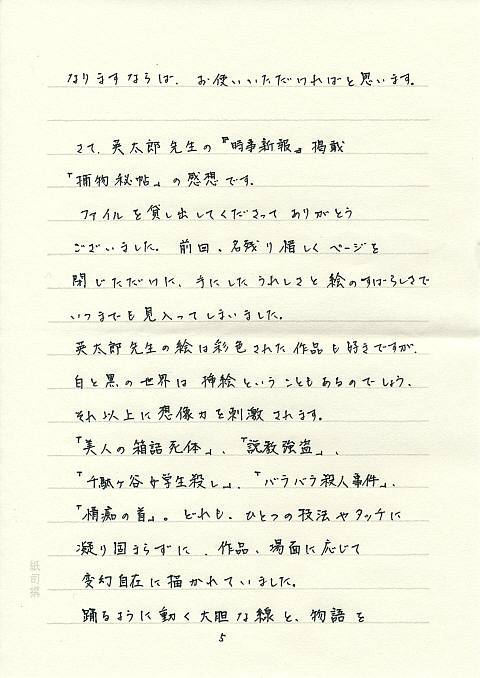 なりますならば、お使いいただければと思います。
さて、英太郎先生の『時事新報』掲載
「捕物秘帖」の感想です。
ファイルを貸し出してくださって ありがとう
ございました。前回、名残り惜しく ページを
閉じただけに、手にしたうれしさと 絵のすばらしさで
いつまでも見入ってしまいました。
英太郎先生の絵は彩色された作品も好きですが、
白と黒の世界は 挿絵ということもあるのでしょう、
それ以上に想像力を刺激されます。
「美人の箱詰死体」、「説教強盗」、
「千駄ヶ谷女学生殺し」、「バラバラ殺人事件」、
「情痴の首」。どれも、ひとつの技法やタッチに
凝り固まらずに、作品、場面に応じて
変幻自在に描かれていました。
踊るように動く大胆な線と、物語を
5
紙司撰